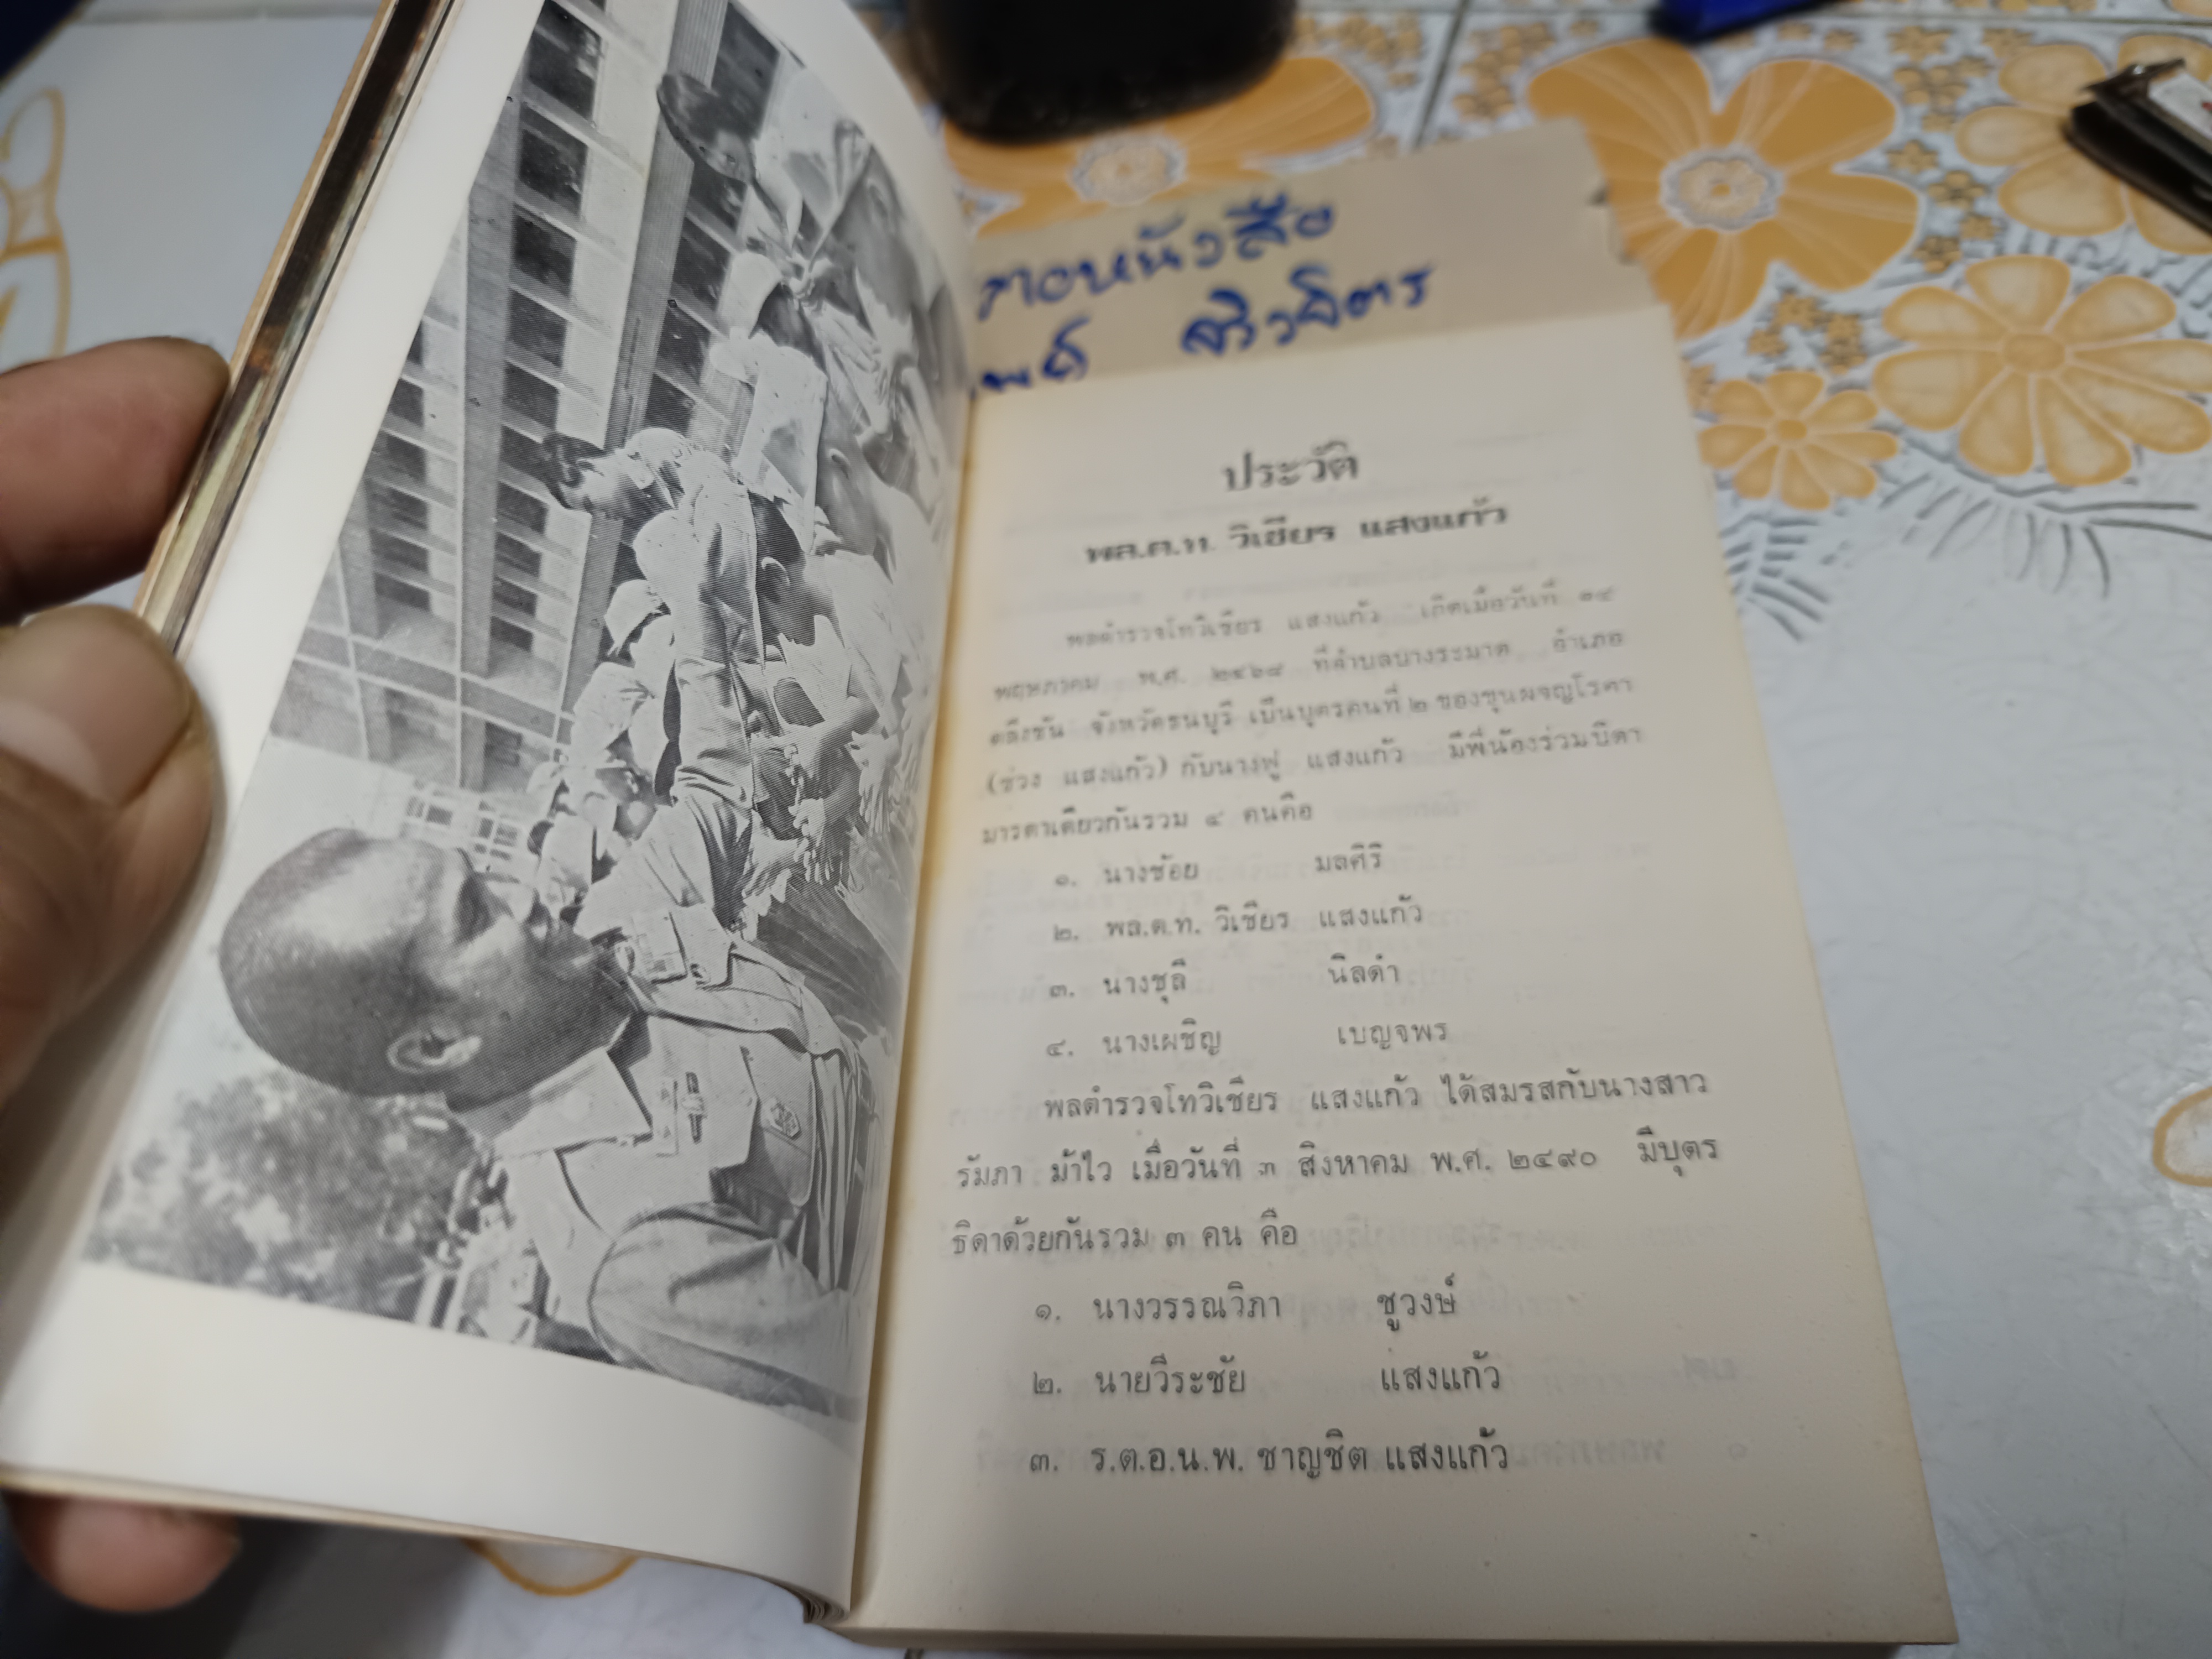 ตอหนังสือ
ประวัติ
พล.ต.ท. วิเชียร แสงแก้ว
พลตำรวจโทวิเชียร แสงแก้ว เกิดเมื่อวันที่ ๑๔
พฤษภาคม พ.ศ. ๒๔๖๘ ที่ตำบลบางระมาด อำเภอ
ตลิ่งชัน จังหวัดธนบุรี เป็นบุตรคนที่ ๒ ของขุนผจญโรคา
(ช่วง แสงแก้ว) กับนางฟู แสงแก้ว มีพี่น้องร่วมบิดา
มารดาเดียวกันรวม ๔ คนคือ
๑. นางช้อย มลศิริ
๒. พล.ต.ท. วิเชียร แสงแก้ว
๓. นางชุลี นิลดำ
๔. นางเผชิญ เบญจพร
พลตำรวจโทวิเชียร แสงแก้ว ได้สมรสกับนางสาว
รัมภา ม้าไว เมื่อวันที่ ๓ สิงหาคม พ.ศ. ๒๔๙๐ มีบุตร
ธิดาด้วยกันรวม ๓ คน คือ
๑. นางวรรณวิภา ชูวงษ์
๒. นายวีระชัย แสงแก้ว
๓. ร.ต.อ.น.พ. ชาญชิต แสงแก้ว